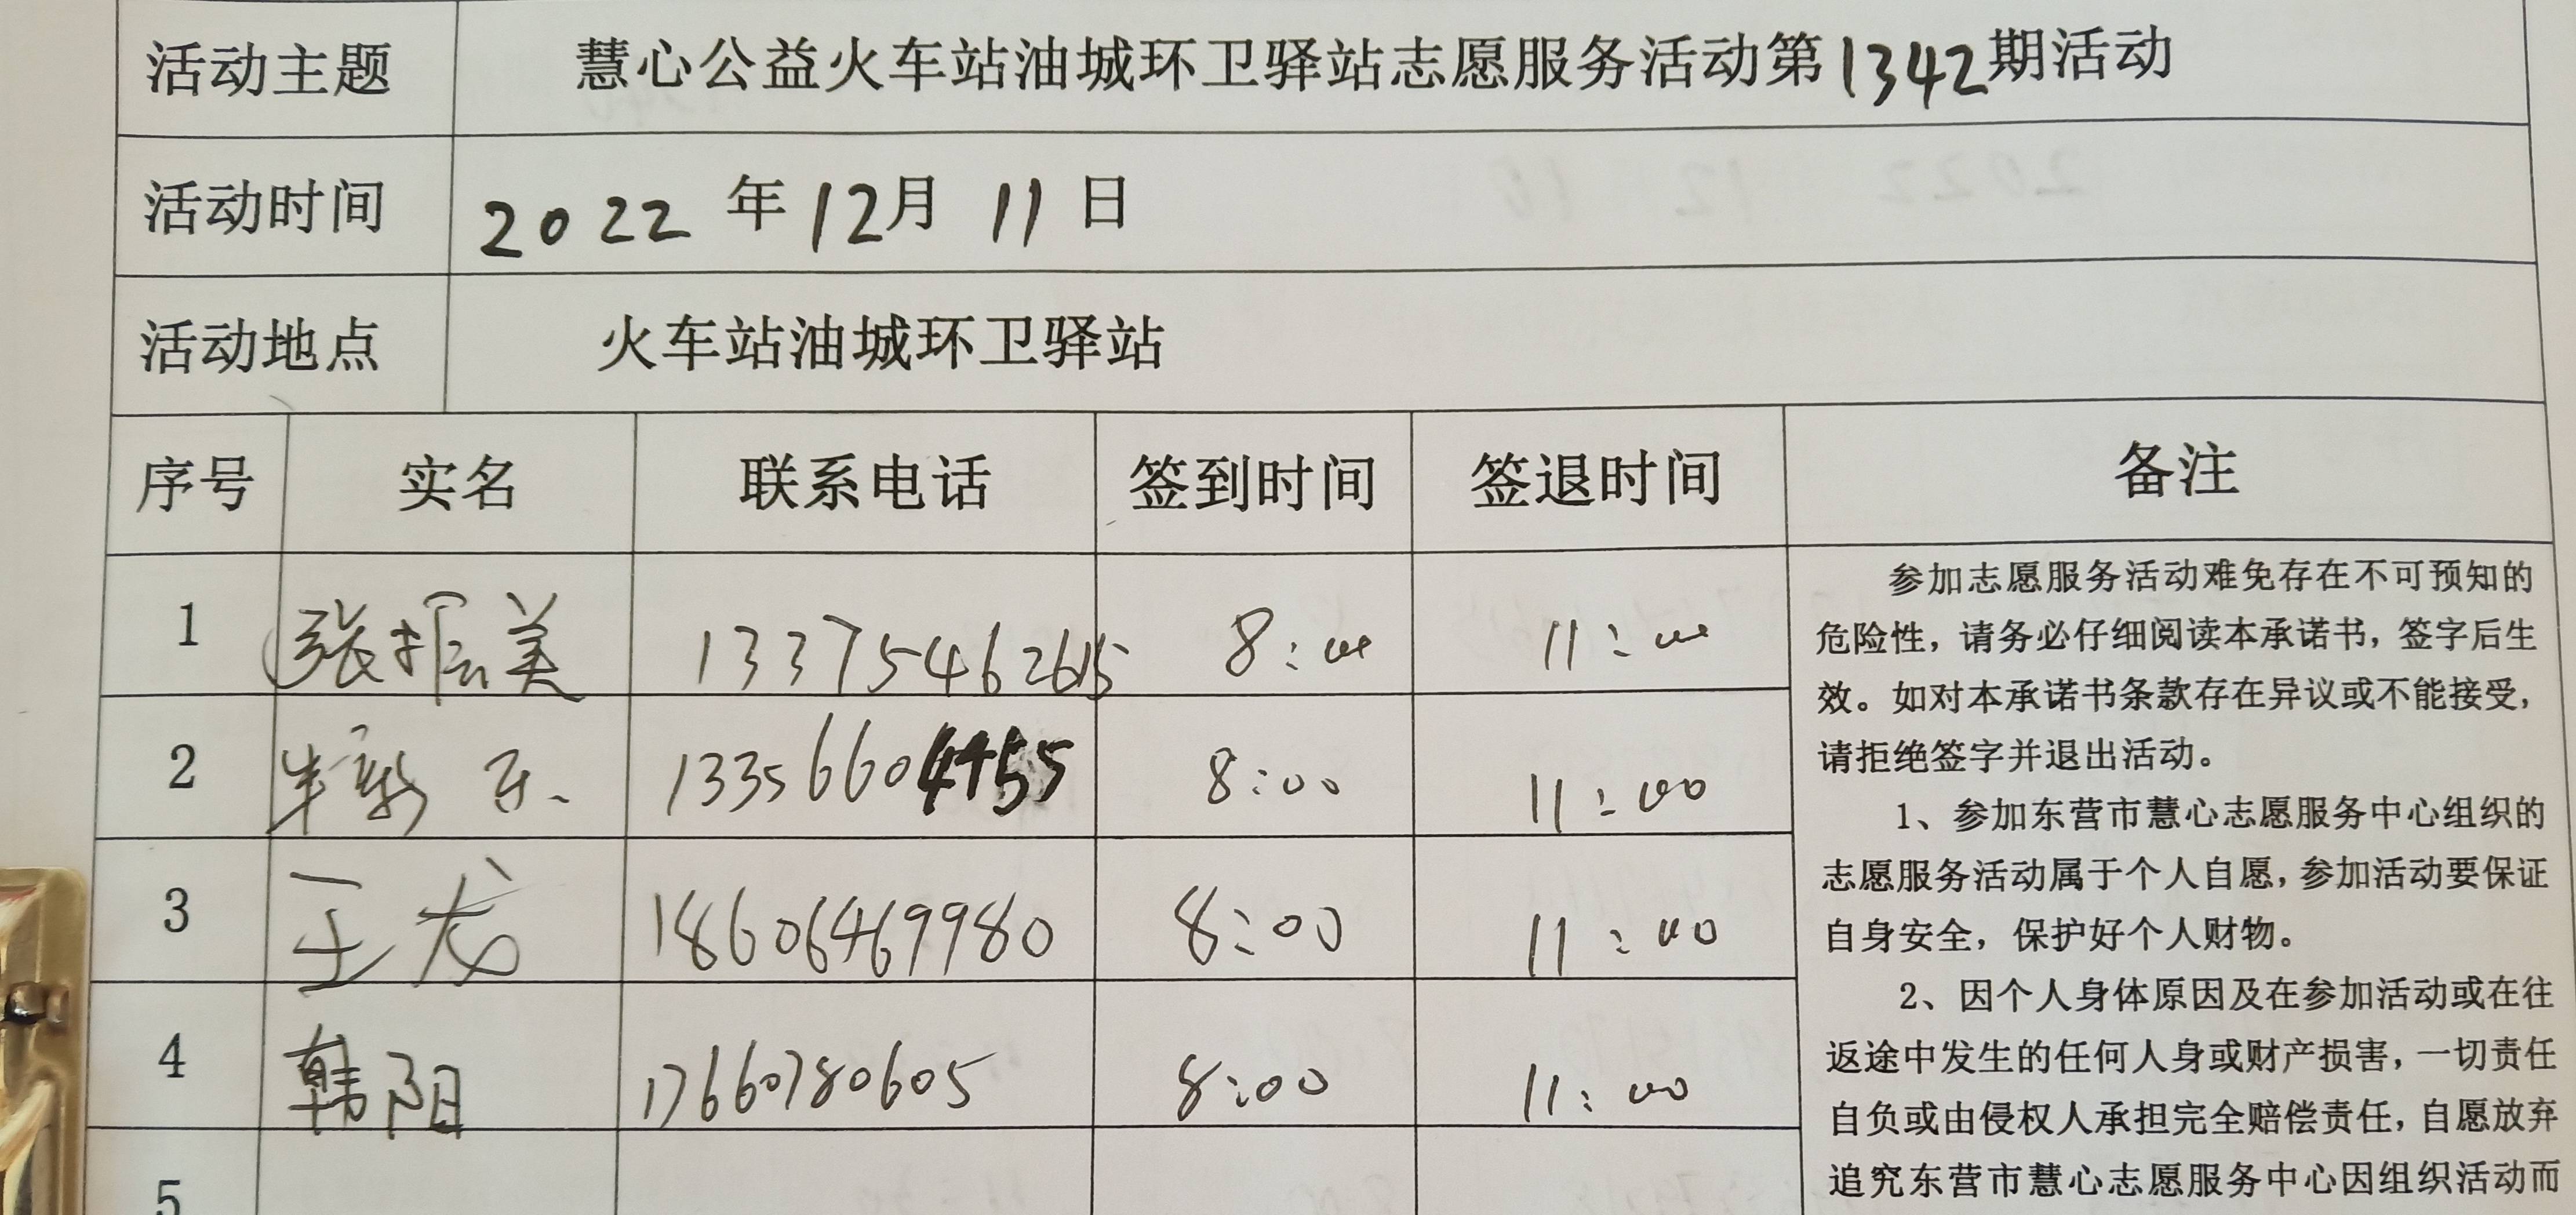 活动主题 慧心公益火车站油城环卫驿站志愿服务活动第1342期活动
活动时间 2022年12月11日
活动地点 火车站油城环卫驿站
序号 实名 联系电话 签到时间 签退时间 备注
1 张振美 13375462615 8:00 11:00
2 13356604455 8:00 11:00
3 王龙 18606469980 8:00 11:00
4 韩阳 17660780605 8:00 11:00
5
参加志愿服务活动难免存在不可预知的
危险性，请务必仔细阅读本承诺书，签字后生
效。如对本承诺书条款存在异议或不能接受，
请拒绝签字并退出活动。
1、参加东营市慧心志愿服务中心组织的
志愿服务活动属于个人自愿，参加活动要保证
自身安全，保护好个人财物。
2、因个人身体原因及在参加活动或在往
返途中发生的任何人身或财产损害，一切责任
自负或由侵权人承担完全赔偿责任，自愿放弃
追究东营市慧心志愿服务中心因组织活动而